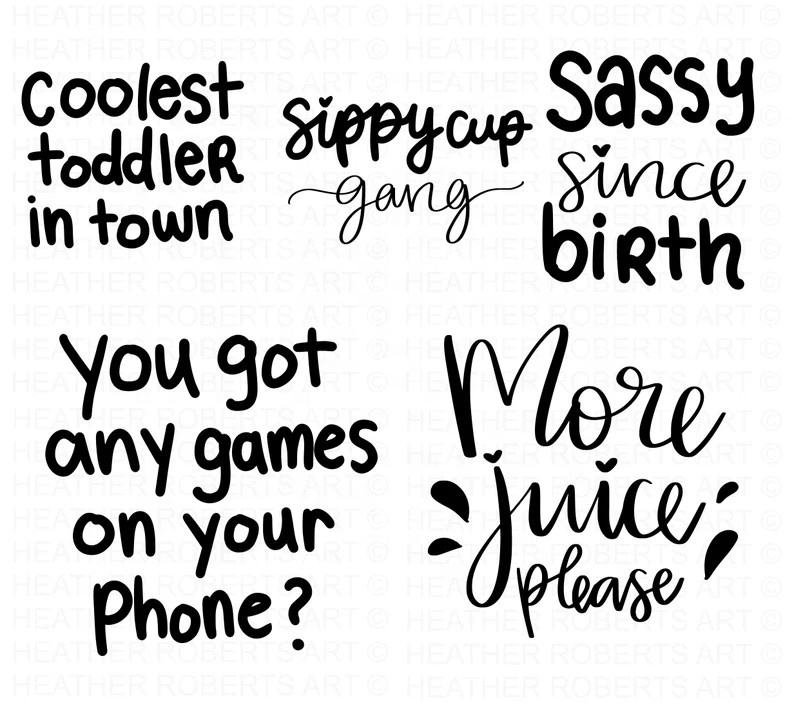 HEATHER ROBERTS ART ©
coolest
toddleR
in town
sippy cup
gang
sassy
since
biRth
you got
any games
on your
Phone?
More
juice
please